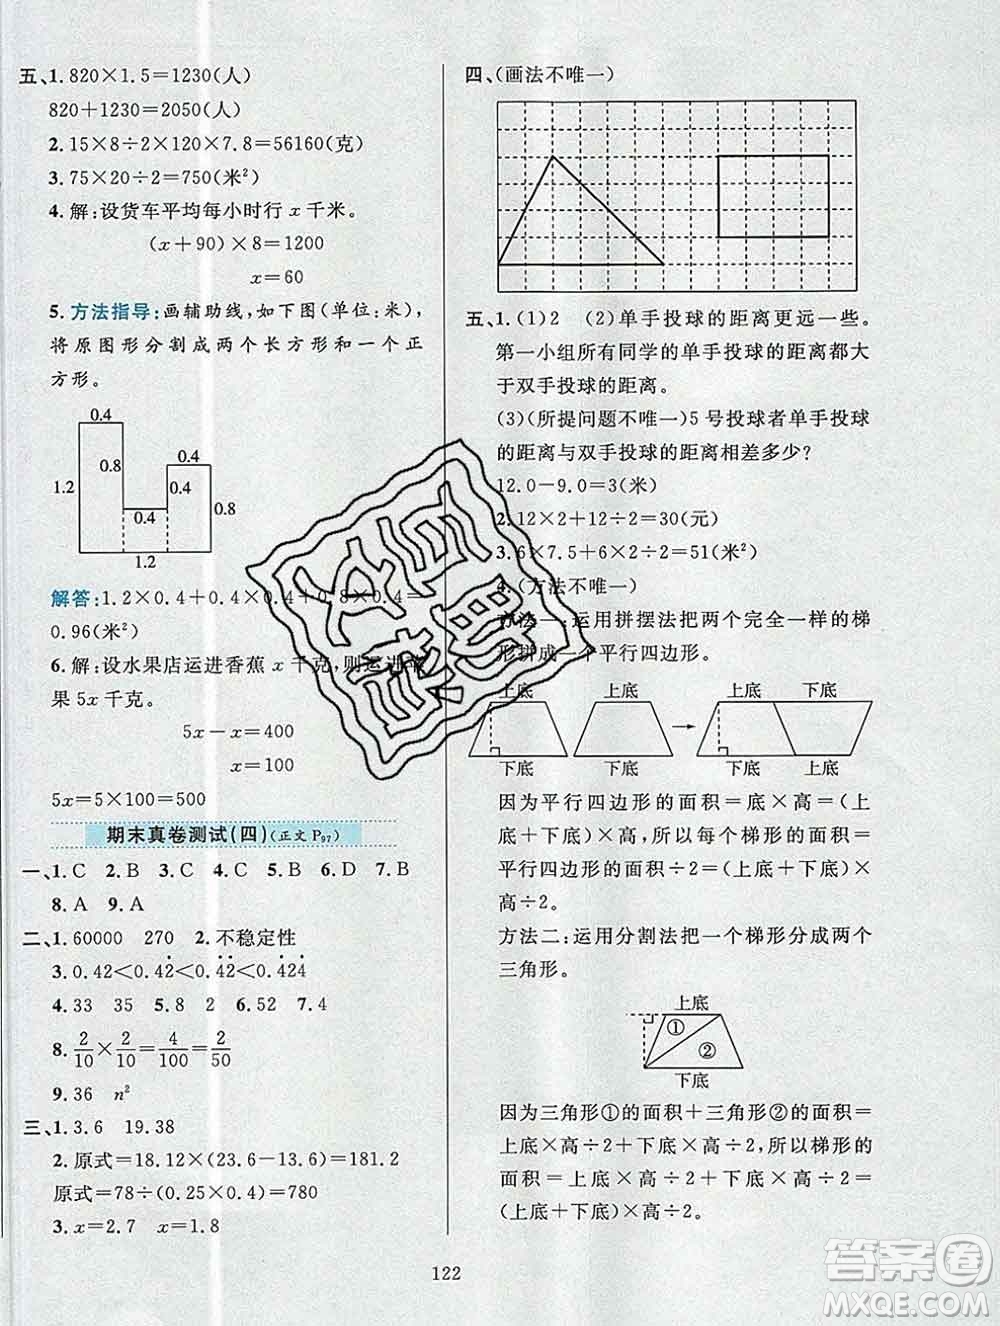 五、1. 820×1.5=1230(人)
820+1230=2050(人)
2. 15×8÷2×120×7.8=56160(克)
3. 75×20÷2=750(米²)
4. 解:设货车平均每小时行 x 千米。
(x+90)×8=1200
x=60
5. 方法指导:画辅助线,如下图(单位:米),
将原图形分割成两个长方形和一个正
方形。
0.4
0.8
0.4
1.2
0.4
0.8
1.2
解答:1.2×0.4+0.4×0.4+0.8×0.4=
0.96(米²)
6. 解:设水果店运进香蕉 x 千克,则运进苹
果 5x 千克。
5x-x=400
x=100
5x=5×100=500
期末真卷测试(四)(正文 P97)
一、1. C 2. B 3. C 4. C 5. B 6. D 7. B
8. A 9. A
二、1. 60000 270 2. 不稳定性
3. 0.42<0.42̇<0.4̇2̇<0.4̇24̇
4. 33 35 5. 8 2 6. 52 7. 4
8. 2/10×2/10=4/100=2/50
9. 36 n²
三、1. 3.6 19.38
2. 原式=18.12×(23.6-13.6)=181.2
原式=78÷(0.25×0.4)=780
3. x=2.7 x=1.8
四、(画法不唯一)
五、1. (1)2 (2)单手投球的距离更远一些。
第一小组所有同学的单手投球的距离都大
于双手投球的距离。
(3)(所提问题不唯一)5 号投球者单手投球
的距离与双手投球的距离相差多少?
12.0-9.0=3(米)
2. 12×2+12÷2=30(元)
3. 6×7.5+6×2÷2=51(米²)
4. (方法不唯一)
方法一:运用拼摆法把两个完全一样的梯
形拼成一个平行四边形。
上底 上底 上底 下底
下底 下底 下底 上底
因为平行四边形的面积=底×高=(上底+
下底)×高,所以每个梯形的面积=
平行四边形的面积÷2=(上底+下底)×
高÷2。
方法二:运用分割法把一个梯形分成两个
三角形。
上底
①
②
下底
因为三角形①的面积+三角形②的面积=
上底×高÷2+下底×高÷2,所以梯形的
面积=上底×高÷2+下底×高÷2=
(上底+下底)×高÷2。
122
答案圈
MXQE.COM